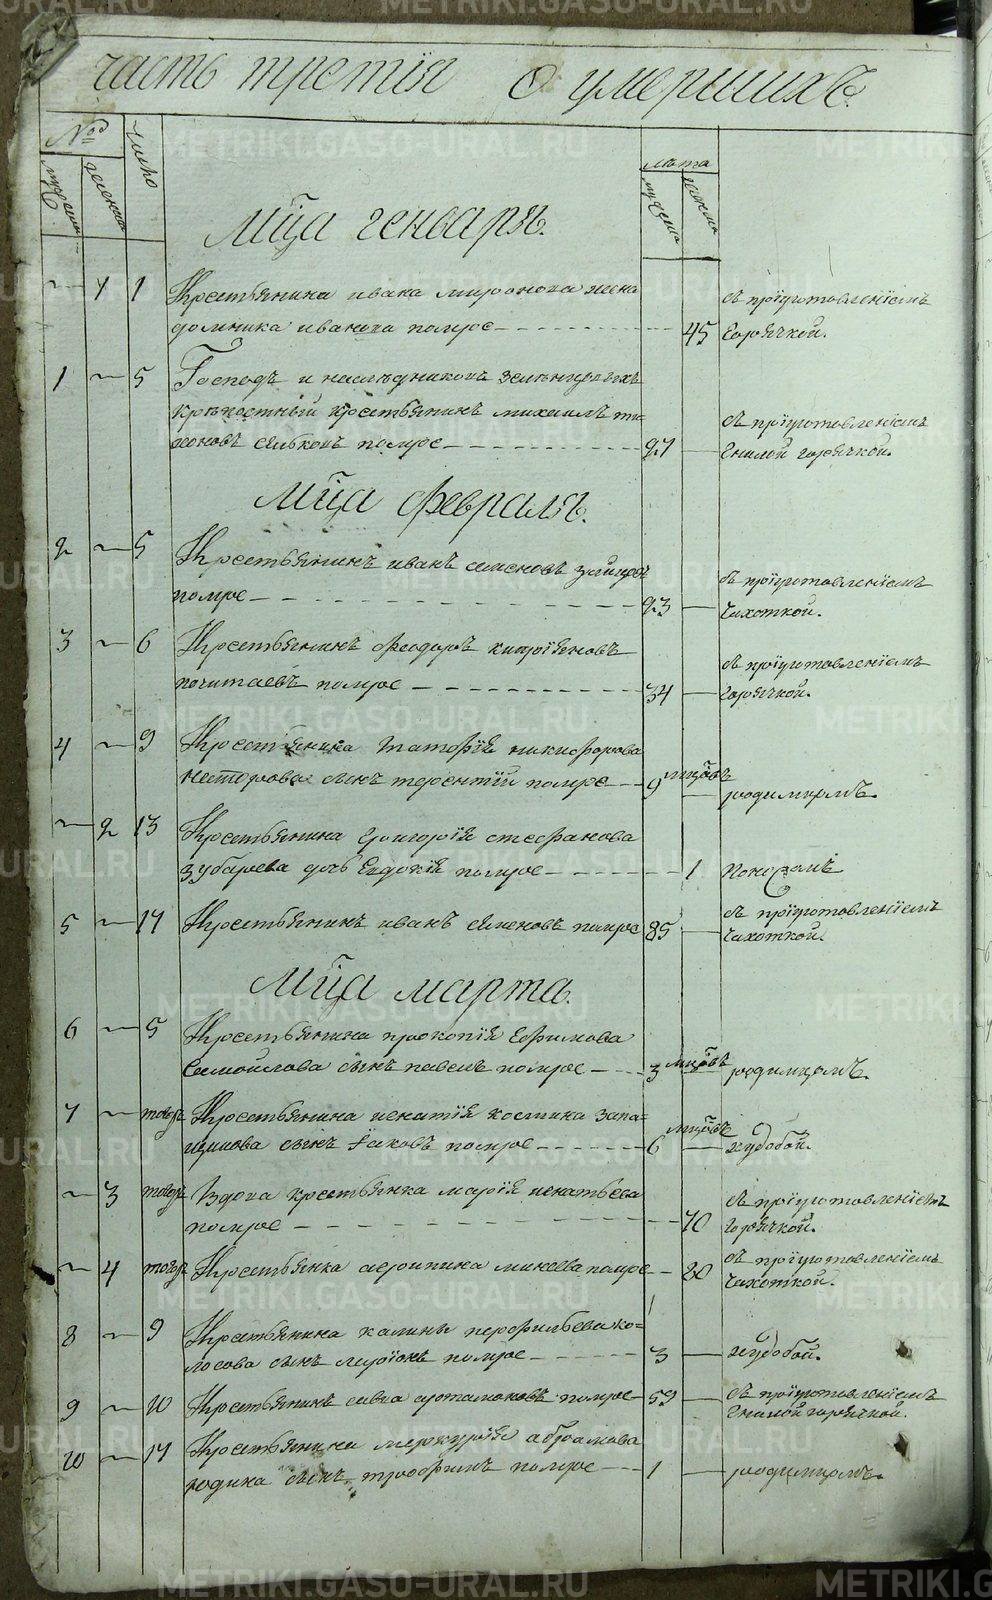 часть третїя о умершихъ
№
число
мужеска
женска
лѣта
мужеска
женска
мц̃а генваря.
~ 1 1 Крестьянина ивана миронова жена
домника иванова помре 45
съ прїуготовленїемъ
горячкой.
1 ~ 5 Господъ и наслѣдниковъ
крѣпостный крестьянинъ михаилъ ти-
хоновъ помре 27
съ прїуготовленїемъ
гнилой горячкой.
мц̃а февраля.
2 ~ 5 Крестьянинъ иванъ семеновъ
помре 23
съ прїуготовленїемъ
чахоткой.
3 ~ 6 Крестьянинъ феодоръ кипрїяновъ
почитаевъ помре 34
съ прїуготовленїемъ
горячкой.
4 ~ 9 Крестьянина никифорова
нестерова сынъ терентїй помре 9 мцовъ
родимцомъ.
~ 2 13 Крестьянина григорїя стефанова
зубарева дочь Евдокїя помре 1
поносомъ
5 ~ 17 Крестьянинъ иванъ семеновъ помре 85
съ прїуготовленїемъ
чахоткой.
мц̃а марта.
6 ~ 5 Крестьянина прокопїя Ефимова
Самойлова сынъ павелъ помре 3 мцовъ
родимцомъ.
7 ~ тогожъ Крестьянина игнатїя космина
сынъ Їаковъ помре 6 мцовъ
худобой.
~ 3 тогожъ Вдова крестьянка марїя игнатьева
помре 70
съ прїуготовленїемъ
горячкой.
~ 4 тогожъ Крестьянка агрипина михеева помре 20
съ прїуготовленїемъ
чахоткой.
8 ~ 9 Крестьянина калины перфильева ко-
лосова сынъ помре 3
худобой.
9 ~ 10 Крестьянинъ савва артамоновъ помре 59
съ прїуготовленїемъ
гнилой горячкой.
10 ~ 17 Крестьянина меркурїя абрамова
родина сынъ трофимъ помре 1
родимцомъ.
METRIKI.GASO-URAL.RU